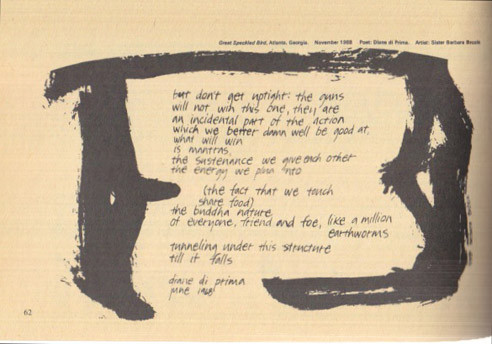 Great Speckled Bird, Atlanta, Georgia. November 1968 Poet: Diane di Prima. Artist: Sister Barbara
but don't get uptight: the guns
will not win this one, they are
an incidental part of the action
which we better damn well be good at,
what will win
is mantras,
the sustenance we give each other
the energy we plug into
(the fact that we touch
share food)
the buddha nature
of everyone, friend and foe, like a million
earthworms
tunneling under this structure
till it falls
diane di prima
june 1968
62